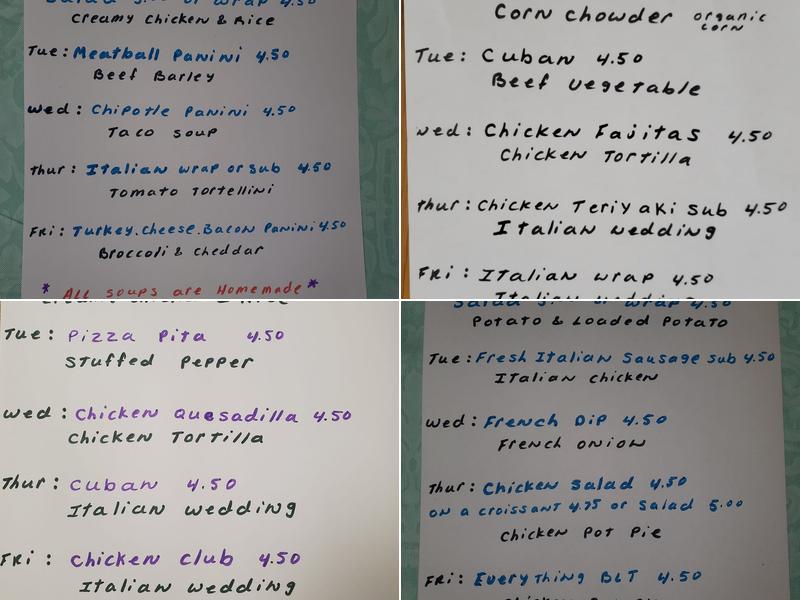 Creamy Chicken & Rice
Tue: Meatball Panini 4.50
Beef Barley
Wed: Chipotle Panini 4.50
Taco soup
Thur: Italian wrap or sub 4.50
Tomato Tortellini
FRi: Turkey.cheese.Bacon Panini 4.50
Broccoli & cheddar
* All soups are Homemade *
Corn chowder organic corn
Tue: Cuban 4.50
Beef vegetable
wed: Chicken Fajitas 4.50
Chicken Tortilla
Thur: Chicken Teriyaki sub 4.50
Italian wedding
FRi: Italian wrap 4.50
Italian wedding
Tue: Pizza Pita 4.50
Stuffed Pepper
wed: Chicken Quesadilla 4.50
Chicken Tortilla
Thur: Cuban 4.50
Italian wedding
FRi: Chicken club 4.50
Italian wedding
Potato & Loaded Potato
Tue: Fresh Italian Sausage sub 4.50
Italian chicken
wed: French Dip 4.50
French onion
Thur: Chicken Salad 4.50
on a croissant 4.75 or Salad 5.00
Chicken Pot Pie
FRi: Everything BLT 4.50